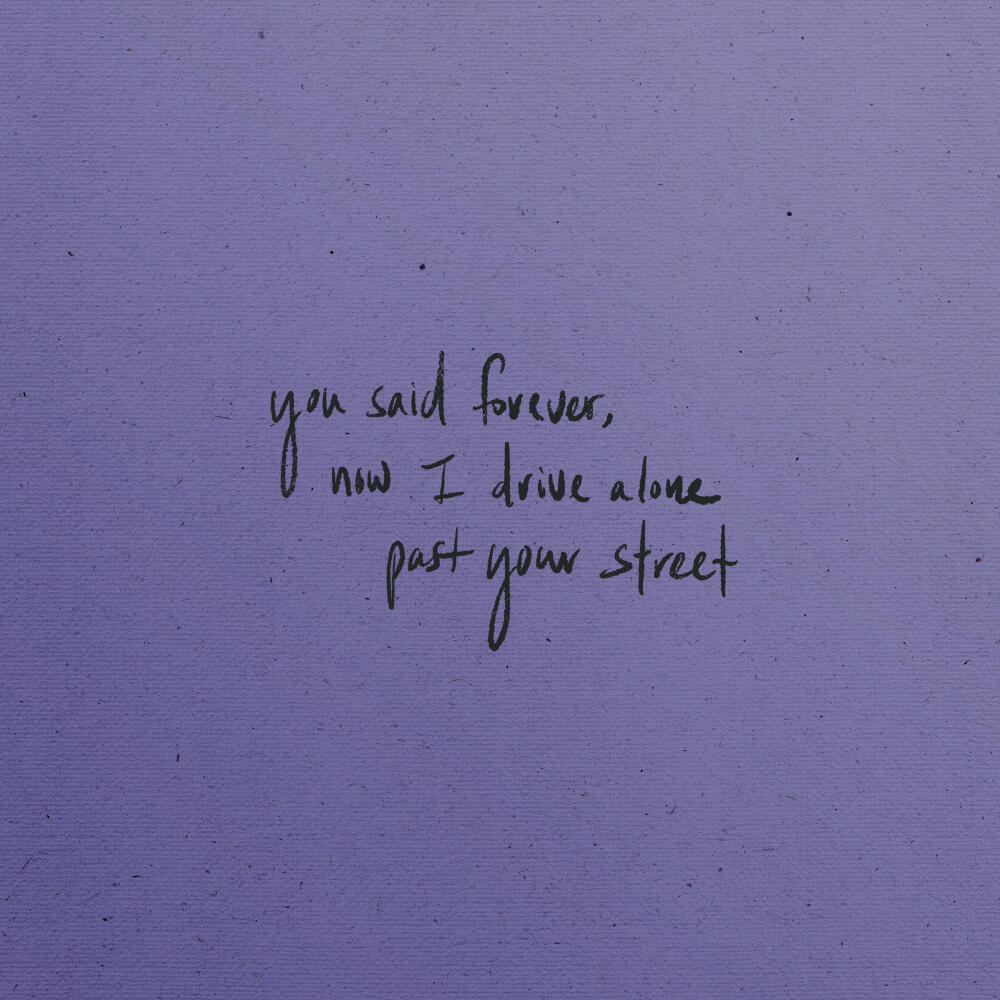 you said forever,
now I drive alone
past your street